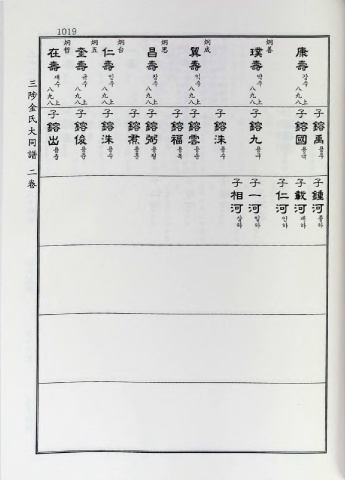 1019
三陟金氏大同譜 二卷
康壽 강수 八九八上
炯善
璞壽 박수 八九八上
炯成
翼壽 익수 八九八上
炯思
昌壽 창수 八九八上
炯台
仁壽 인수 八九八上
炯五
奎壽 규수 八九八上
炯哲
在壽 재수 八九八上
子 鎔禹 용우
子 鎔國 용국
子 鎔九 용구
子 鎔洙 용수
子 鎔雲 용운
子 鎔福 용복
子 鎔弼 용필
子 鎔熏 용훈
子 鎔洙 용수
子 鎔俊 용준
子 鎔出 용출
子 鍾河 종하
子 載河 재하
子 仁河 인하
子 一河 일하
子 相河 상하